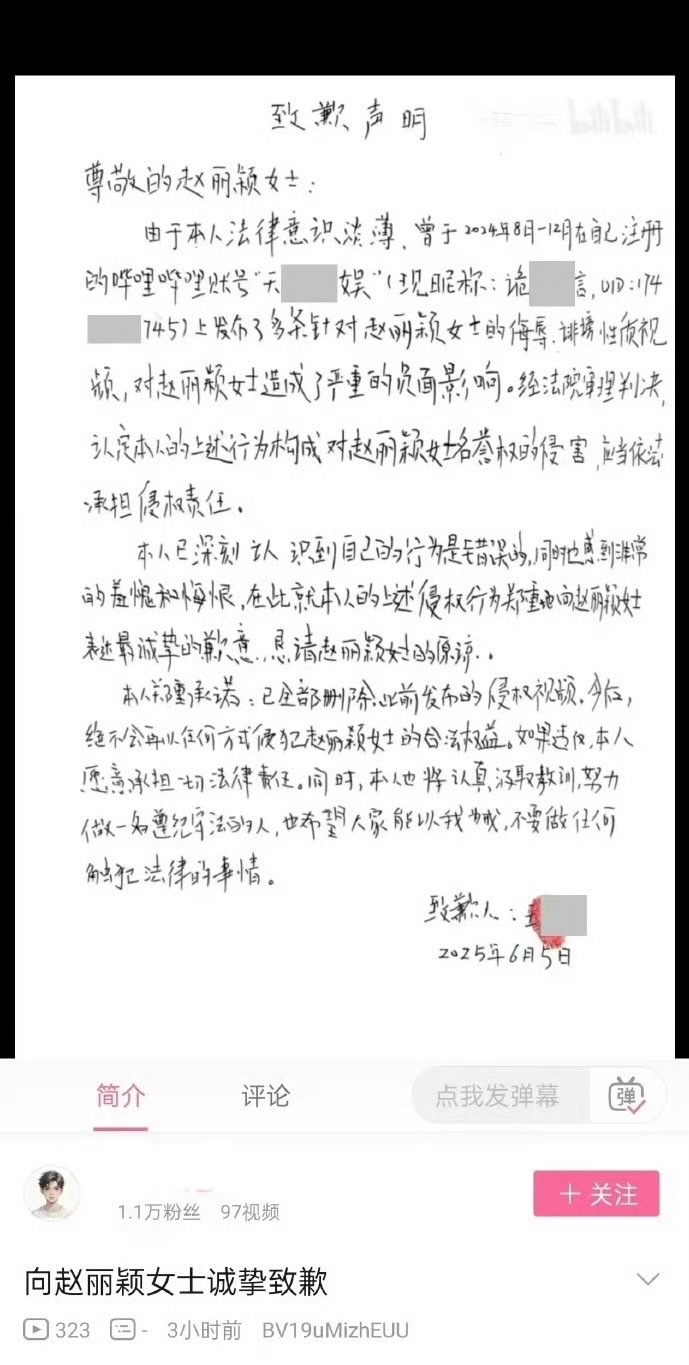 致歉声明
尊敬的赵丽颖女士：
由于本人法律意识淡薄、曾于2024年8月-12月在自己注册
的哔哩哔哩账号“天 娱”（现昵称：诡 言，UID：174
745）上发布了多条针对赵丽颖女士的侮辱、诽谤性质视
频，对赵丽颖女士造成了严重的负面影响。经法院审理判决，
认定本人的上述行为构成对赵丽颖女士名誉权的侵害，应当依法
承担侵权责任。
本人已深刻认识到自己的行为是错误的，同时也感到非常
的羞愧和悔恨，在此就本人的上述侵权行为郑重地向赵丽颖女士
表达最诚挚的歉意，恳请赵丽颖女士的原谅。
本人郑重承诺：已全部删除此前发布的侵权视频。今后，
绝不会再以任何方式侵犯赵丽颖女士的合法权益。如果违反，本人
愿意承担一切法律责任。同时，本人也将认真汲取教训，努力
做一名遵纪守法的人，也希望大家能以我为戒，不要做任何
触犯法律的事情。
致歉人：王
2025年6月5日
简介
评论
点我发弹幕
弹
1.1万粉丝 97视频
＋ 关注
向赵丽颖女士诚挚致歉
323 - 3小时前 BV19uMizhEUU